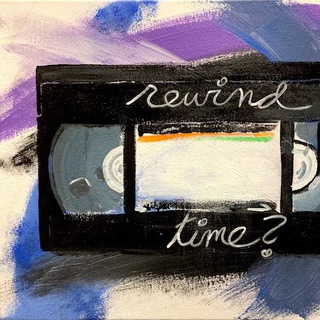 rewind
time?